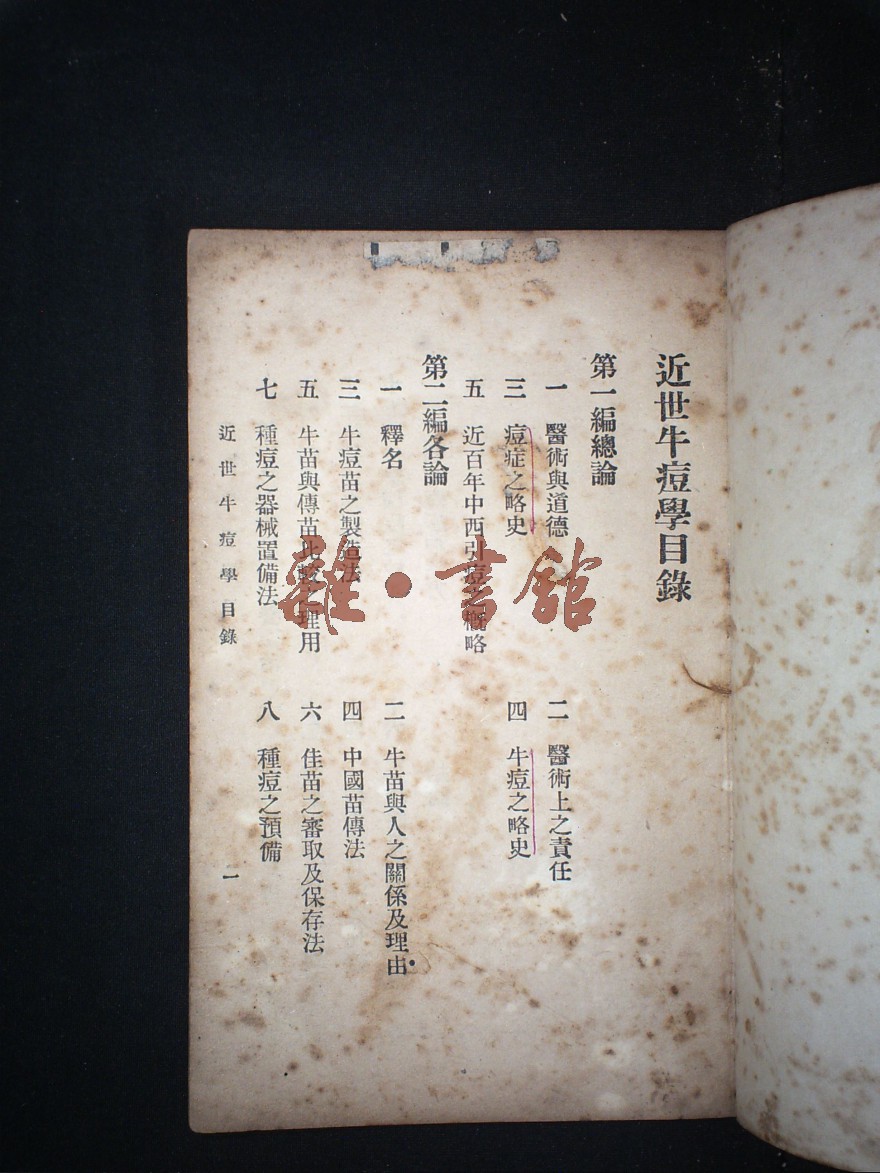 近世牛痘學目錄
第一編總論
一 醫術與道德
二 醫術上之責任
三 痘症之略史
四 牛痘之略史
五 近百年中西引痘之概略
第二編各論
一 釋名
二 牛苗與人之關係及理由
三 牛痘苗之製造法
四 中國苗傳法
五 牛苗與傳苗比較之理用
六 佳苗之審取及保存法
七 種痘之器械置備法
八 種痘之預備
近世牛痘學目錄
一
雜·書館